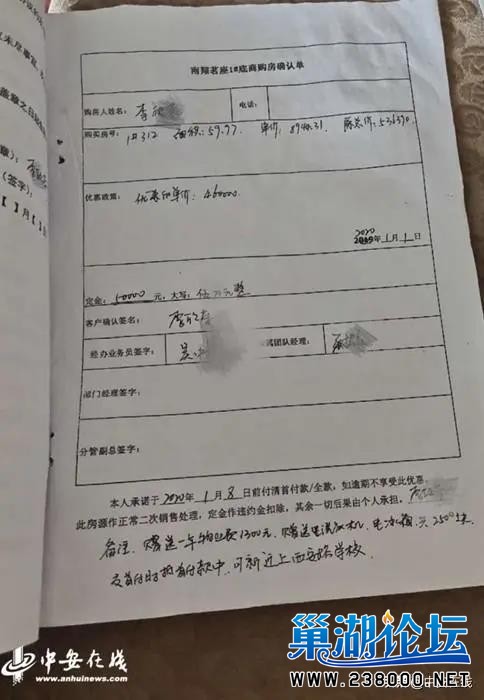 南翔茗座1#底商购房确认单
购房人姓名： 李
电话：
购买房号： 1#312 面积：59.97 单价：8940.31 房总价：536390
优惠政策： 优惠后单价：460000
2020
2019年1月1日
定金：50000元，大写：伍万元整
客户确认签名：
经办业务员签字： 吴
团队经理：
部门经理签字：
分管副总签字：
本人承诺于2020年1月8日前付清首付款/全款，如逾期不享受此优惠，
此房源作正常二次销售处理，定金作违约金扣除，其余一切后果由个人承担。
备注：赠送一年物业费1300元，赠送
学校
中安在线
www.anhuinews.com
巢湖论坛
www.238000.NET
未尽事宜
盖章之日起
章）：
（签字）
】月【